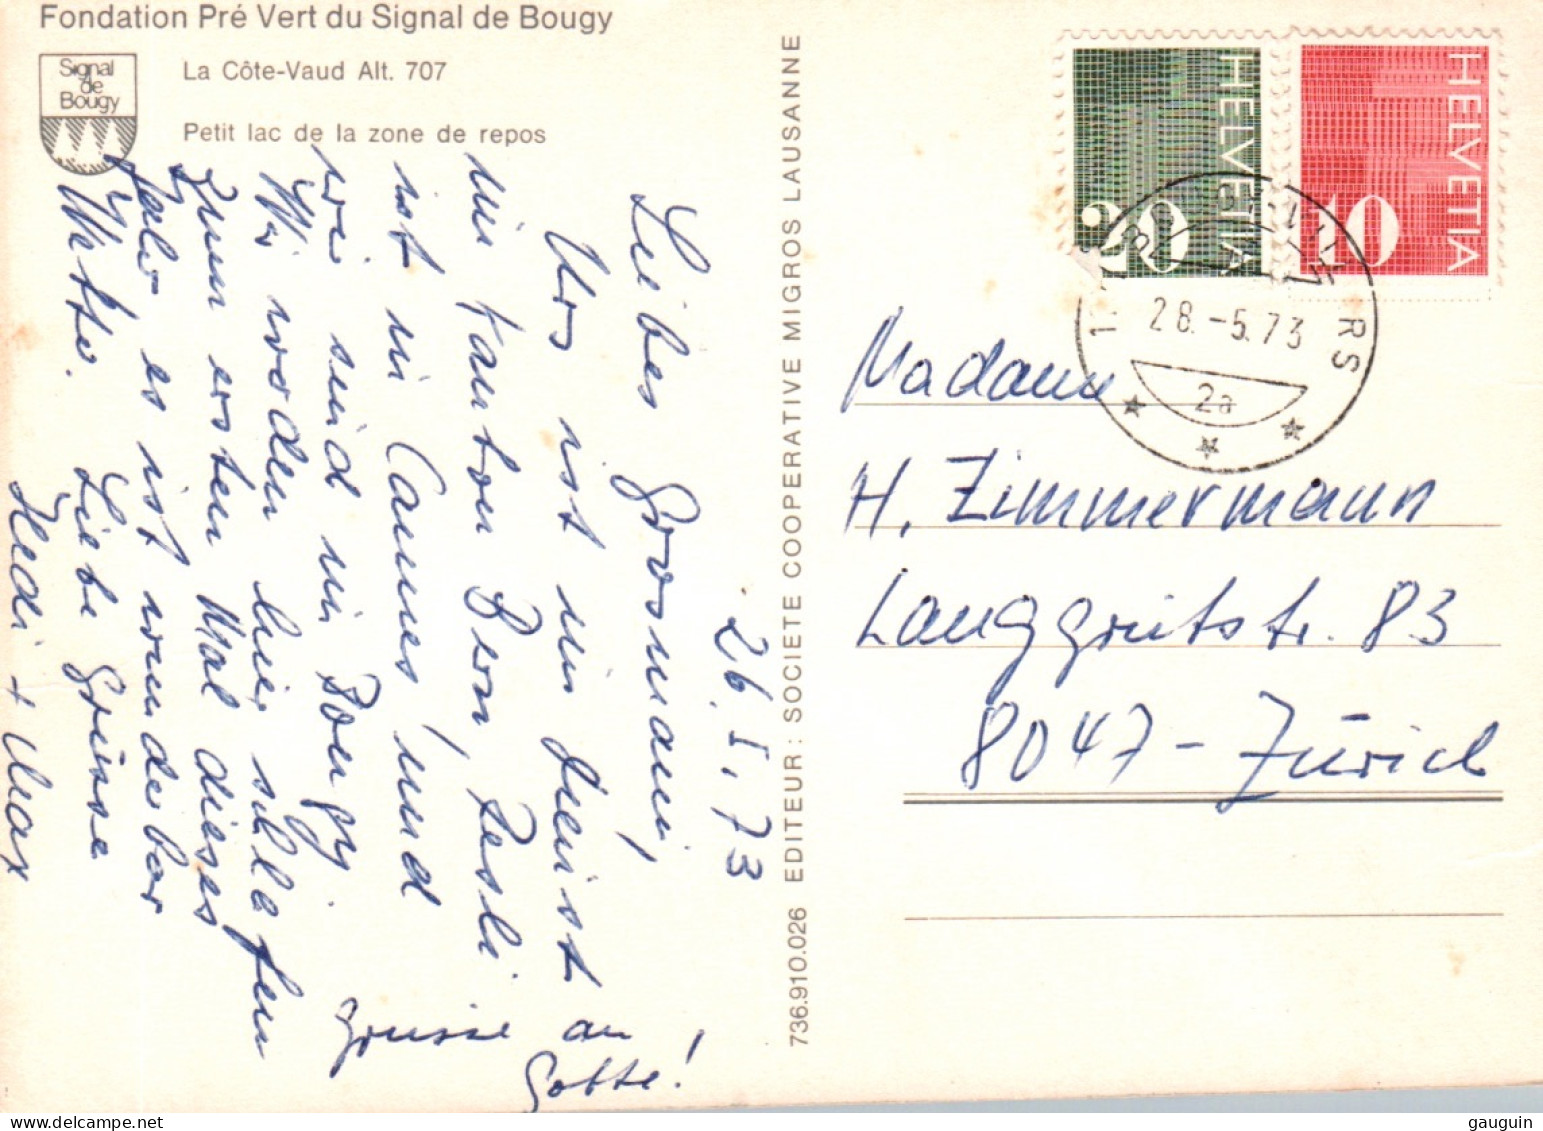 Fondation Pré Vert du Signal de Bougy
Signal
de
Bougy
La Côte-Vaud Alt. 707
Petit lac de la zone de repos
26. I. 73
Liebes Grosmami,
Urs ist im Dienst
im Kanton Bern, Resli
ist in Cannes, und
wir sind in Bougy
Wir werden hier
zum ersten Mal dieses
Jahr es ist wunderbar
Liebe Grüsse
Hedi + Max
Grüsse an
Gotte!
736.910.026 EDITEUR: SOCIETE COOPERATIVE MIGROS LAUSANNE
HELVETIA
20
HELVETIA
10
28.-5.73
2a
Madame
H. Zimmermann
Langgrütstr. 83
8047 - Zürich
gauguin_________